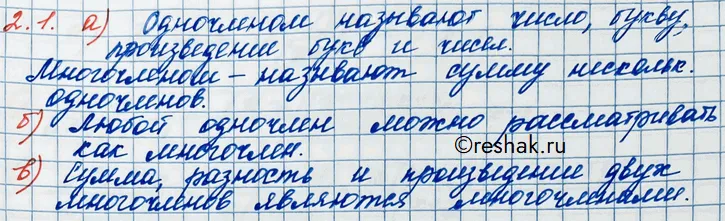 2.1. а) Одночленом называют число, букву,
произведение букв и чисел.
Многочленом - называют сумму нескольк.
одночленов.
б) Любой одночлен можно рассматривать
как многочлен.
©reshak.ru
в) Сумма, разность и произведение двух
многочленов являются многочленами.